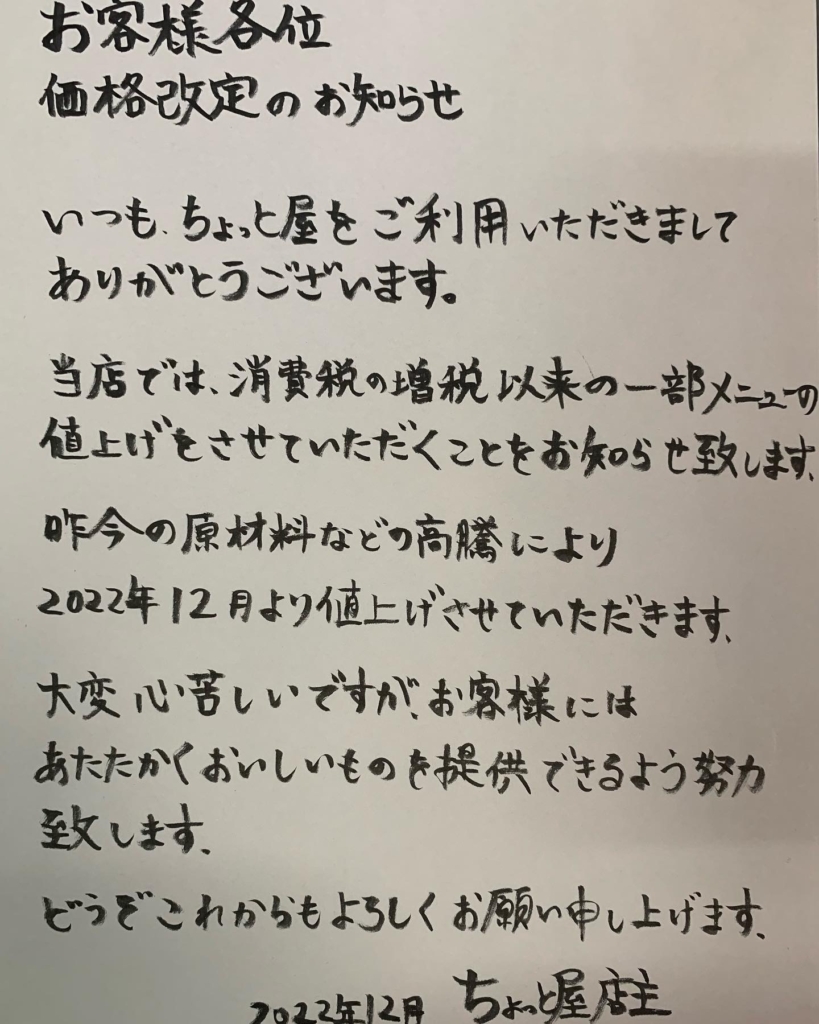 お客様各位
価格改定のお知らせ
いつも、ちょっと屋をご利用いただきまして
ありがとうございます。
当店では、消費税の増税以来の一部メニューの
値上げをさせていただくことをお知らせ致します、
昨今の原材料などの高騰により
2022年12月より値上げさせていただきます、
大変心苦しいですが、お客様には
あたたかくおいしいものを提供できるよう努力
致します、
どうぞこれからもよろしくお願い申し上げます、
2022年12月 ちょっと屋 店主